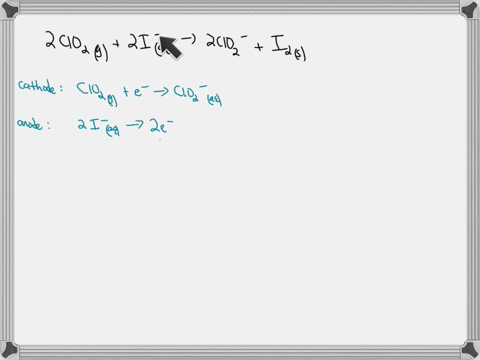 2ClO₂(g) + 2I⁻(aq) → 2ClO₂⁻ + I₂(s)
cathode: ClO₂(g) + e⁻ → ClO₂⁻(aq)
anode: 2I⁻(aq) → 2e⁻